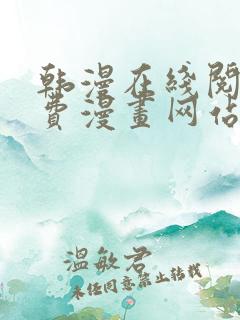 韩漫在线阅
费漫畫网站
温敏君
未经同意禁止转载